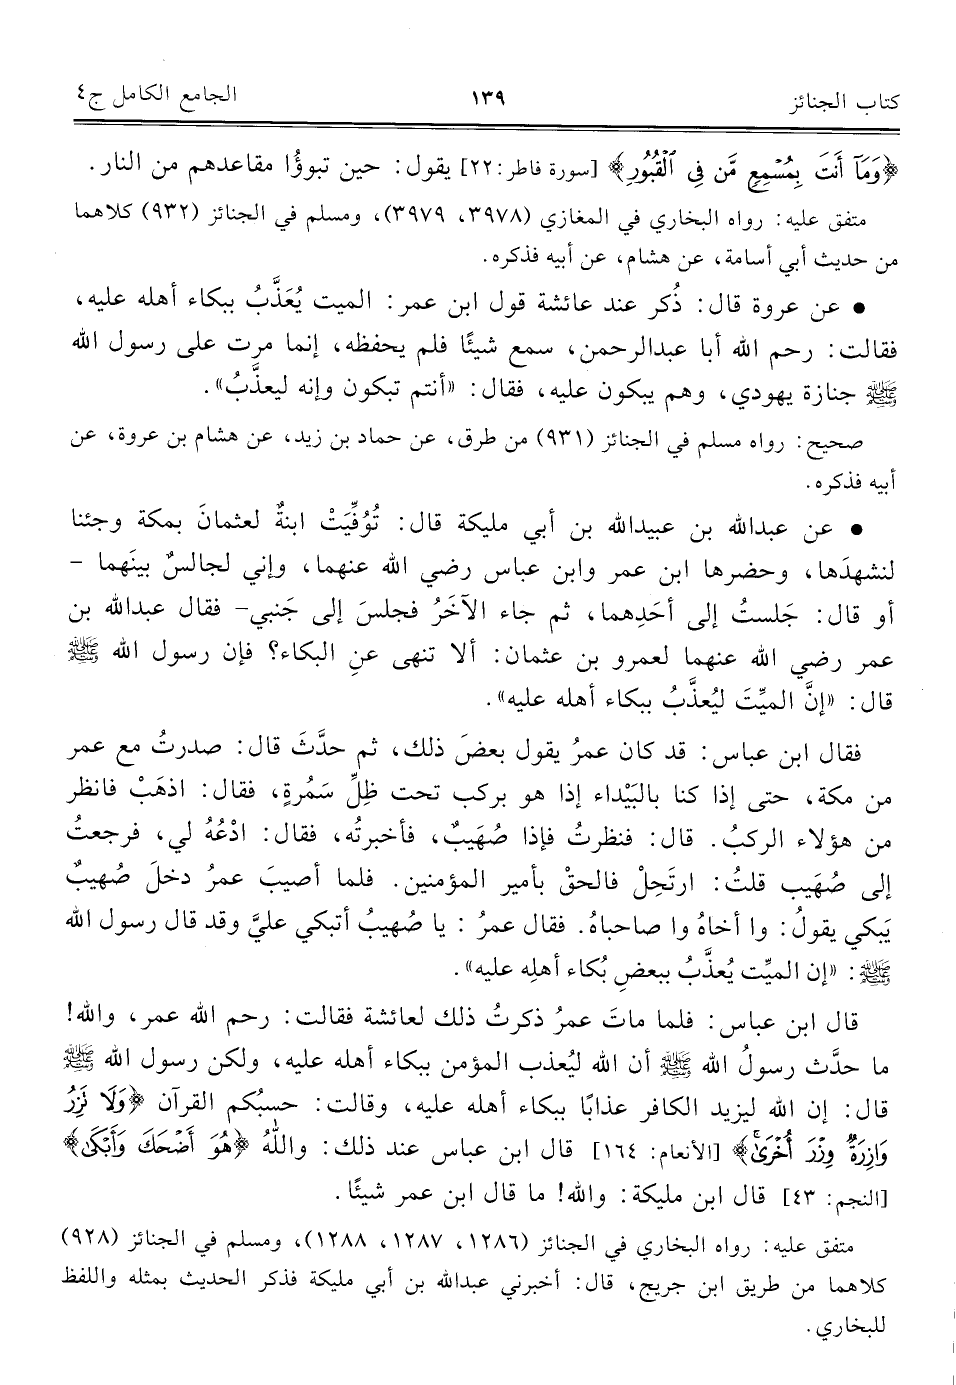 كتاب الجنائز ١٣٩ الجامع الكامل ج٤
﴿وَمَآ أَنتَ بِمُسْمِعٍ مَّن فِى ٱلْقُبُورِ﴾ [سورة فاطر: ٢٢] يقول: حين تبوؤُا مقاعدهم من النار.
متفق عليه: رواه البخاري في المغازي (٣٩٧٨، ٣٩٧٩)، ومسلم في الجنائز (٩٣٢) كلاهما
من حديث أبي أسامة، عن هشام، عن أبيه فذكره.
• عن عروة قال: ذُكر عند عائشة قول ابن عمر: الميت يُعَذَّبُ ببكاء أهله عليه،
فقالت: رحم الله أبا عبدالرحمن، سمع شيئًا فلم يحفظه، إنما مرت على رسول الله
ﷺ جنازة يهودي، وهم يبكون عليه، فقال: «أنتم تبكون وإنه ليعذَّبُ».
صحيح: رواه مسلم في الجنائز (٩٣١) من طرق، عن حماد بن زيد، عن هشام بن عروة، عن
أبيه فذكره.
• عن عبدالله بن عبيدالله بن أبي مليكة قال: تُوُفِّيَتْ ابنةٌ لعثمانَ بمكة وجئنا
لنشهدَها، وحضرها ابن عمر وابن عباس رضي الله عنهما، وإني لجالسٌ بينَهما -
أو قال: جَلستُ إلى أحَدِهما، ثم جاء الآخَرُ فجلسَ إلى جَنبي- فقال عبدالله بن
عمر رضي الله عنهما لعمرو بن عثمان: ألا تنهى عنِ البكاء؟ فإن رسول الله ﷺ
قال: «إنَّ الميِّتَ ليُعذَّبُ ببكاء أهله عليه».
فقال ابن عباس: قد كان عمرُ يقول بعضَ ذلك، ثم حدَّثَ قال: صدرتُ مع عمر
من مكة، حتى إذا كنا بالبَيْداء إذا هو بركب تحت ظِلِّ سَمُرةٍ، فقال: اذهَبْ فانظر
من هؤلاء الركبُ. قال: فنظرتُ فإذا صُهَيبٌ، فأخبرتُه، فقال: ادْعُهُ لي، فرجعتُ
إلى صُهَيب قلتُ: ارتَحِلْ فالحقْ بأمير المؤمنين. فلما أصيبَ عمرُ دخلَ صُهيبٌ
يَبكي يقولُ: وا أخاهُ وا صاحباهُ. فقال عمرُ : يا صُهيبُ أتبكي عليَّ وقد قال رسول الله
ﷺ: «إن الميِّت يُعذَّبُ ببعضِ بُكاء أهلِه عليه».
قال ابن عباس: فلما ماتَ عمرُ ذكرتُ ذلك لعائشة فقالت: رحم الله عمر، والله!
ما حدَّث رسولُ الله ﷺ أن الله ليُعذب المؤمن ببكاء أهله عليه، ولكن رسول الله ﷺ
قال: إن الله ليزيد الكافر عذابًا ببكاء أهله عليه، وقالت: حسبُكم القرآن ﴿وَلَا نَزِرُ
وَازِرَةٌ وِزْرَ أُخْرَىٰ﴾ [الأنعام: ١٦٤] قال ابن عباس عند ذلك: واللهُ ﴿هُوَ أَضْحَكَ وَأَبْكَىٰ﴾
[النجم: ٤٣] قال ابن مليكة: والله! ما قال ابن عمر شيئًا.
متفق عليه: رواه البخاري في الجنائز (١٢٨٦، ١٢٨٧، ١٢٨٨)، ومسلم في الجنائز (٩٢٨)
كلاهما من طريق ابن جريج، قال: أخبرني عبدالله بن أبي مليكة فذكر الحديث بمثله واللفظ
للبخاري.